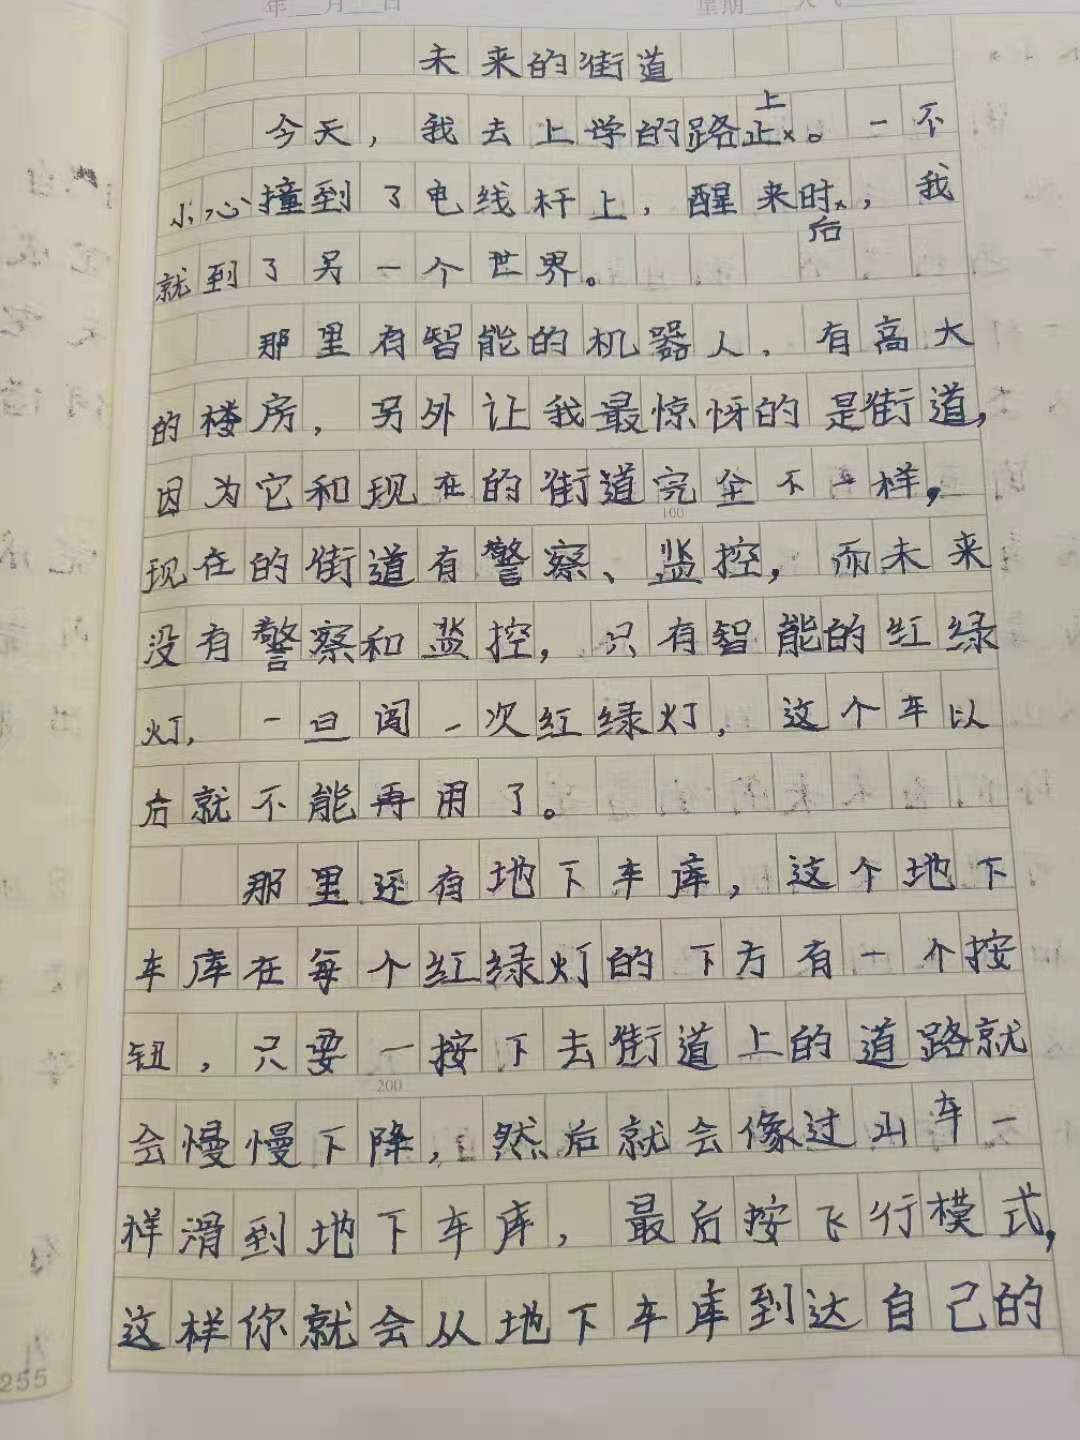 年 月 日 星期 天气
未来的街道
今天，我去上学的路止上。一不
小心撞到了电线杆上，醒来时后，我
就到了另一个世界。
那里有智能的机器人，有高大
的楼房，另外让我最惊讶的是街道，
因为它和现在的街道完全不一样，
100
现在的街道有警察、监控，而未来
没有警察和监控，只有智能的红绿
灯，一旦闯一次红绿灯，这个车以
后就不能再用了。
那里还有地下车库，这个地下
车库在每个红绿灯的下方有一个按
钮，只要一按下去街道上的道路就
200
会慢慢下降，然后就会像过山车一
样滑到地下车库，最后按飞行模式，
这样你就会从地下车库到达自己的
255